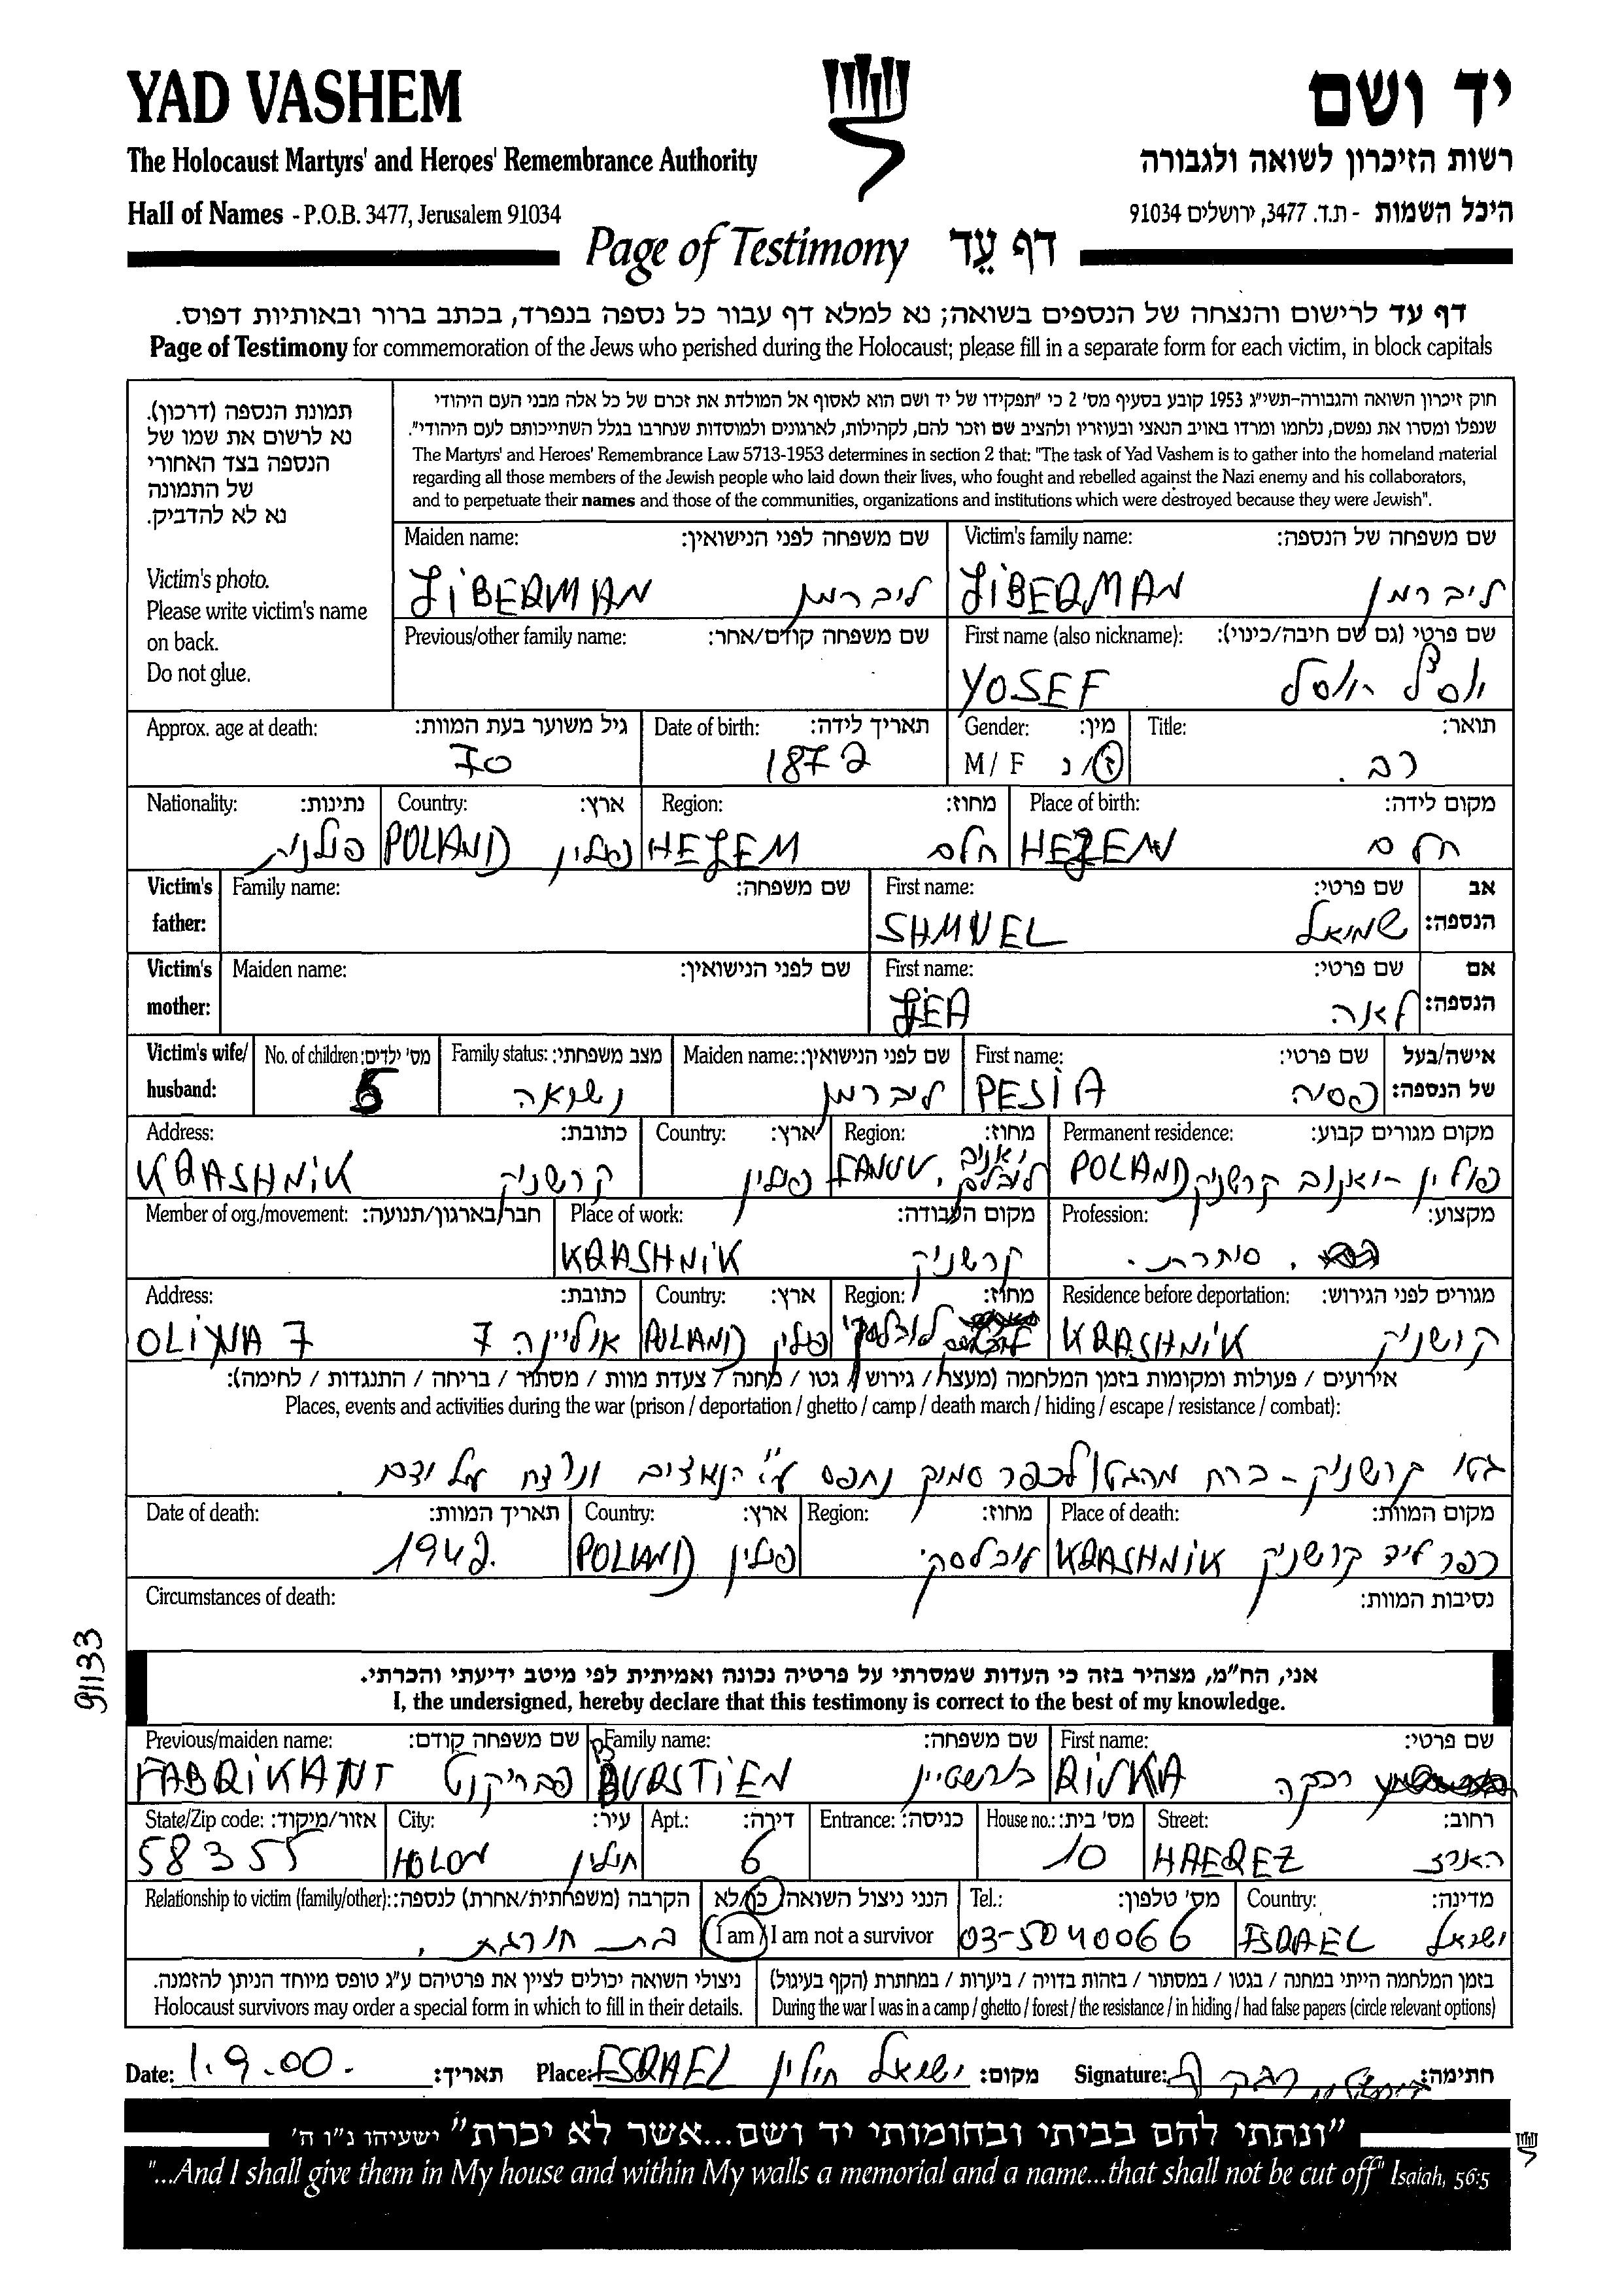 YAD VASHEM
יד ושם
The Holocaust Martyrs' and Heroes' Remembrance Authority
רשות הזיכרון לשואה ולגבורה
Hall of Names - P.O.B. 3477, Jerusalem 91034
היכל השמות - ת.ד. 3477, ירושלים 91034
Page of Testimony דף עֵד
דף עד לרישום והנצחה של הנספים בשואה; נא למלא דף עבור כל נספה בנפרד, בכתב ברור ובאותיות דפוס.
Page of Testimony for commemoration of the Jews who perished during the Holocaust; please fill in a separate form for each victim, in block capitals
תמונת הנספה (דרכון).
נא לרשום את שמו של
הנספה בצד האחורי
של התמונה
נא לא להדביק.
Victim's photo.
Please write victim's name
on back.
Do not glue.
חוק זיכרון השואה והגבורה-תשי"ג 1953 קובע בסעיף מס' 2 כי "תפקידו של יד ושם הוא לאסוף אל המולדת את זכרם של כל אלה מבני העם היהודי
שנפלו ומסרו את נפשם, נלחמו ומרדו באויב הנאצי ובעוזריו ולהציב שם וזכר להם, לקהילות, לארגונים ולמוסדות שנחרבו בגלל השתייכותם לעם היהודי".
The Martyrs' and Heroes' Remembrance Law 5713-1953 determines in section 2 that: "The task of Yad Vashem is to gather into the homeland material
regarding all those members of the Jewish people who laid down their lives, who fought and rebelled against the Nazi enemy and his collaborators,
and to perpetuate their names and those of the communities, organizations and institutions which were destroyed because they were Jewish".
Maiden name: שם משפחה לפני הנישואין: Victim's family name: שם משפחה של הנספה:
LIBERMAN ליברמן LIBERMAN ליברמן
Previous/other family name: שם משפחה קודם/אחר: First name (also nickname): שם פרטי (גם שם חיבה/כינוי):
YOSEF
Approx. age at death: גיל משוער בעת המוות: Date of birth: תאריך לידה: Gender: מין: Title: תואר:
70 1872 M / F ז/נ רב.
Nationality: נתינות: Country: ארץ: Region: מחוז: Place of birth: מקום לידה:
פולנית POLAND פולין HELEM חלם HELEM חלם
Victim's father: Family name: שם משפחה: First name: שם פרטי: אב הנספה:
SHMUEL שמואל
Victim's mother: Maiden name: שם לפני הנישואין: First name: שם פרטי: אם הנספה:
LEA לאה
Victim's wife/ husband: No. of children: מס' ילדים: Family status: מצב משפחתי: Maiden name: שם לפני הנישואין: First name: שם פרטי: אישה/בעל של הנספה:
נשואה ליברמן PESIA פסיה
Address: כתובת: Country: ארץ: Region: מחוז: Permanent residence: מקום מגורים קבוע:
KRASHNIK קרשניק פולין POLAND פולין קרשניק
Member of org./movement: חבר בארגון/תנועה: Place of work: מקום העבודה: Profession: מקצוע:
KRASHNIK קרשניק
Address: כתובת: Country: ארץ: Region: מחוז: Residence before deportation: מגורים לפני הגירוש:
OLINA 7 אוליינה 7 POLAND פולין KRASHNIK קרשניק
אירועים / פעולות ומקומות בזמן המלחמה (מעצר / גירוש / גטו / מחנה / צעדת מוות / מסתור / בריחה / התנגדות / לחימה):
Places, events and activities during the war (prison / deportation / ghetto / camp / death march / hiding / escape / resistance / combat):
גטו קרשניק - ברח מהגטו לכפר נתפס ע"י הנאצים ונרצח על ידם.
Date of death: תאריך המוות: Country: ארץ: Region: מחוז: Place of death: מקום המוות:
1942. POLAND פולין לובלסקי KRASHNIK כפר ליד קרשניק
Circumstances of death: נסיבות המוות:
91133
אני, הח"מ, מצהיר בזה כי העדות שמסרתי על פרטיה נכונה ואמיתית לפי מיטב ידיעתי והכרתי.
I, the undersigned, hereby declare that this testimony is correct to the best of my knowledge.
Previous/maiden name: שם משפחה קודם: Family name: שם משפחה: First name: שם פרטי:
FABRIKANT פבריקנט BURSTIEN בורשטיין RIVKA רבקה
State/Zip code: אזור/מיקוד: City: עיר: Apt.: דירה: Entrance: כניסה: House no.: מס' בית: Street: רחוב:
58355 HOLON חולון 6 10 HAEREZ הארצ
Relationship to victim (family/other): הקרבה (משפחתית/אחרת) לנספה: הנני ניצול השואה: כן/לא Tel.: מס' טלפון: Country: מדינה:
בת חורגת. I am / I am not a survivor 03-5040066 ESRAEL ישראל
ניצולי השואה יכולים לציין את פרטיהם ע"ג טופס מיוחד הניתן להזמנה. בזמן המלחמה הייתי במחנה / בגטו / במסתור / בזהות בדויה / ביערות / במחתרת (הקף בעיגול)
Holocaust survivors may order a special form in which to fill in their details. During the war I was in a camp / ghetto / forest / the resistance / in hiding / had false papers (circle relevant options)
Date: 1.9.00. תאריך: Place: ESRAEL ישראל חולון מקום: Signature: חתימה:
"ונתתי להם בביתי ובחומותי יד ושם...אשר לא יכרת" ישעיהו נ"ו ה'
"...And I shall give them in My house and within My walls a memorial and a name...that shall not be cut off" Isaiah, 56:5